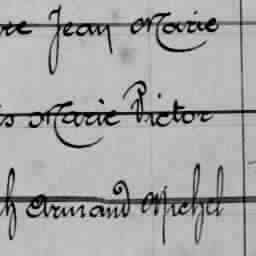 re Jean Marie
is Marie Victor
h Armand Michel